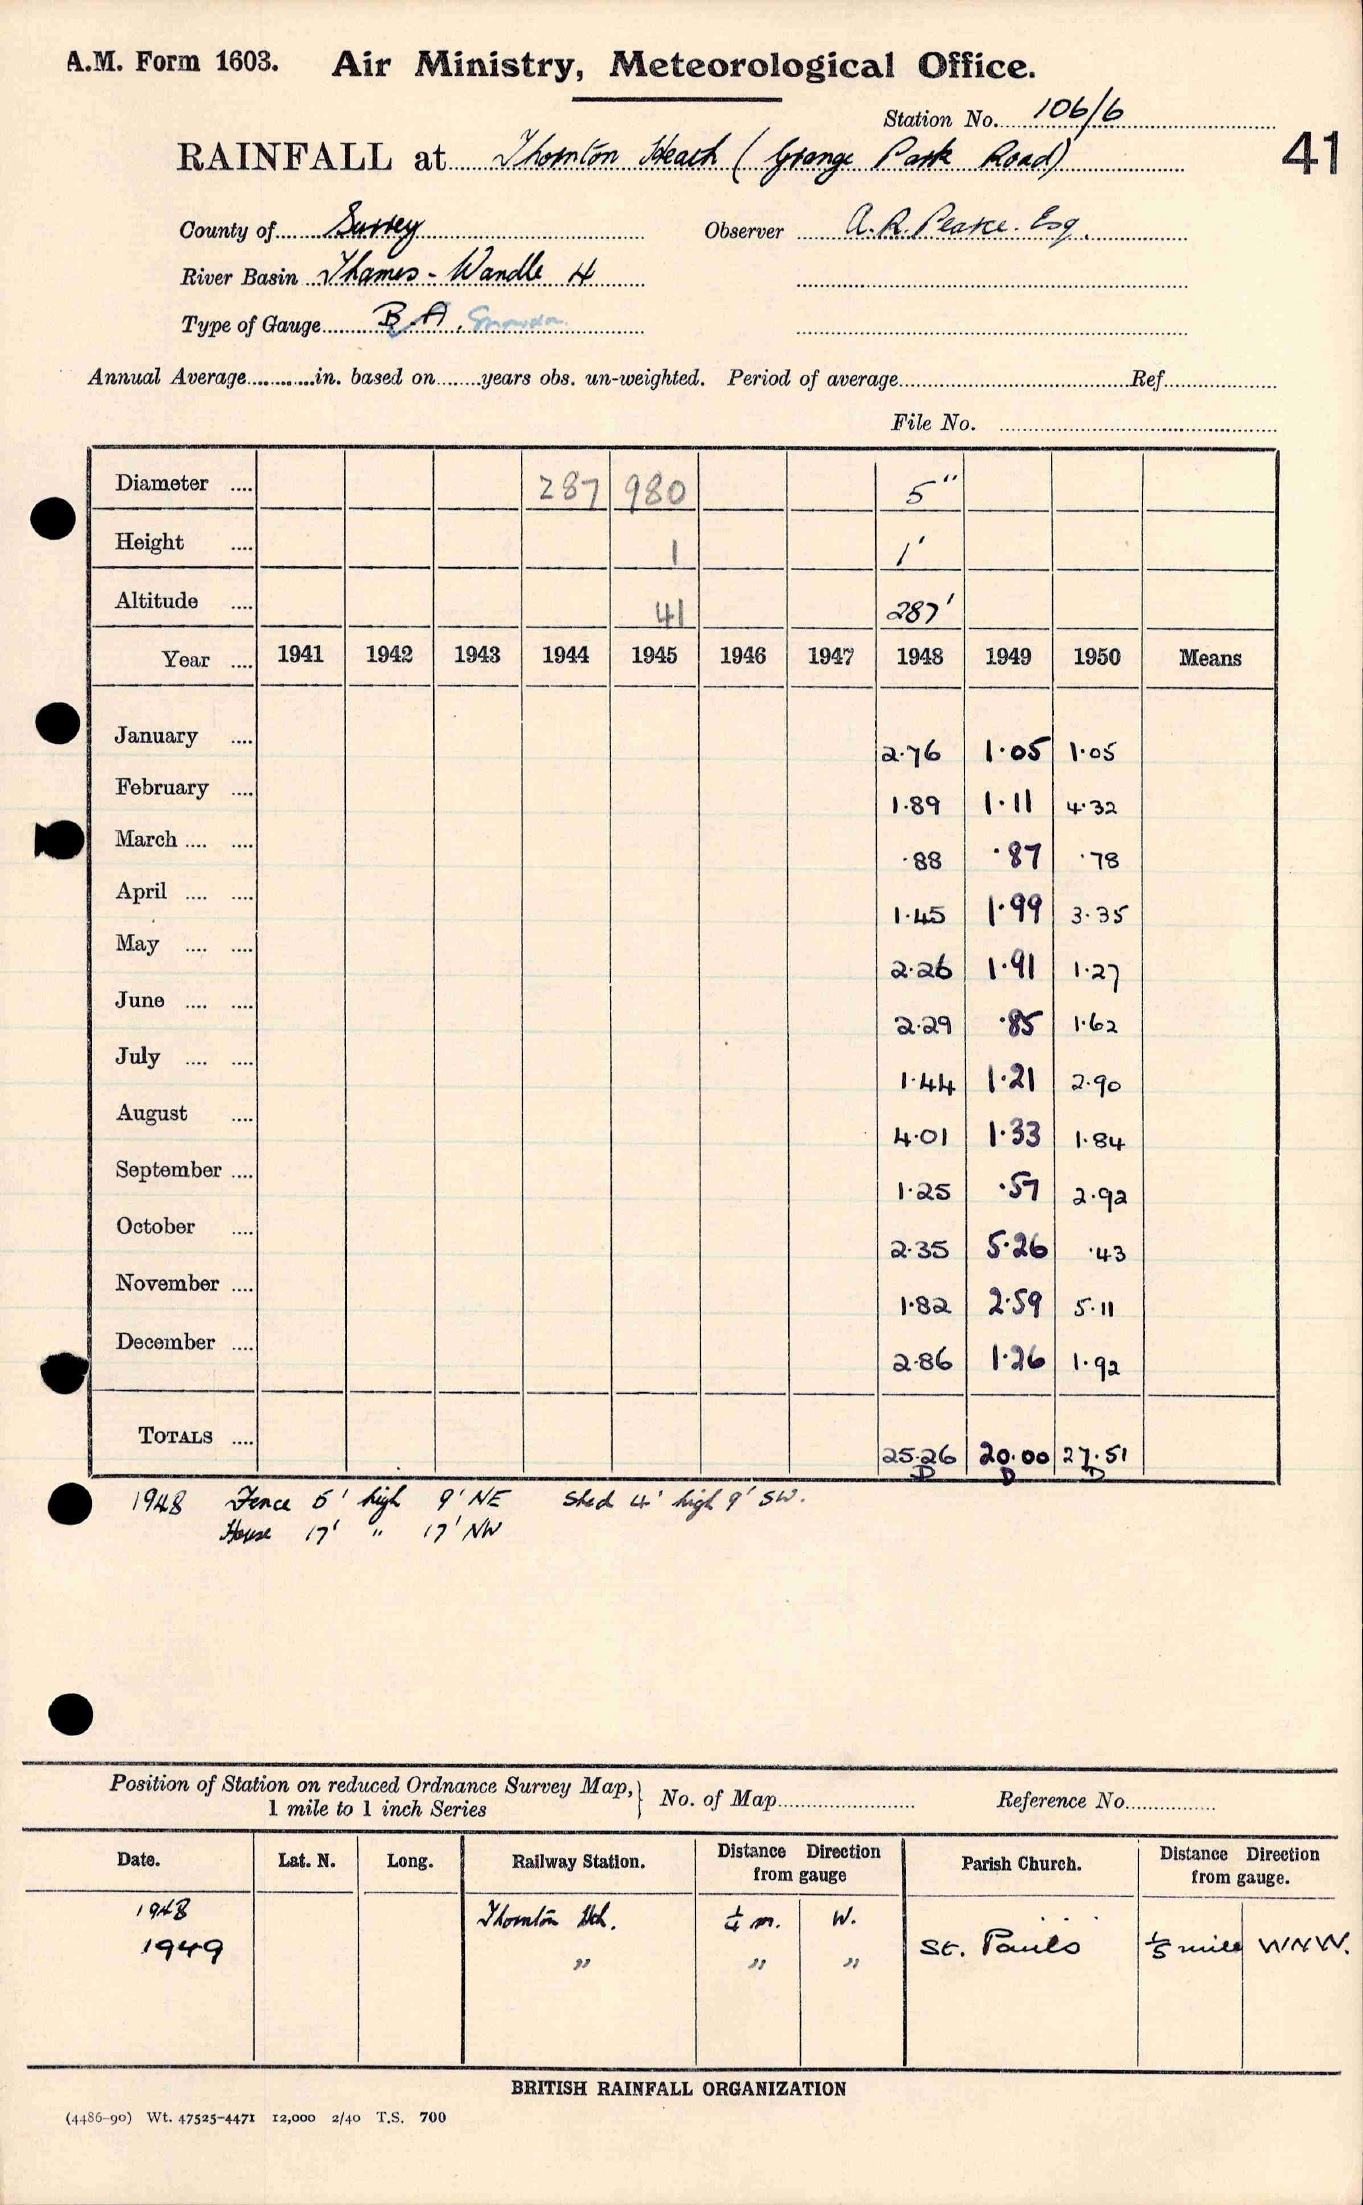 A.M. Form 1603. Air Ministry, Meteorological Office.
Station No. 106/6
RAINFALL at Thornton Heath (Grange Park Road)
41
County of Surrey Observer A.R. Peake. Esq.
River Basin Thames - Wandle 4
Type of Gauge B.A. Snowdon
Annual Average............in. based on........years obs. un-weighted. Period of average........Ref........
File No. ........
Diameter .... 287 980 5"
Height .... 1 1'
Altitude .... 41 287'
Year .... 1941 1942 1943 1944 1945 1946 1947 1948 1949 1950 Means
January .... 2.76 1.05 1.05
February .... 1.89 1.11 4.32
March .... .... .88 .87 .78
April .... .... 1.45 1.99 3.35
May .... .... 2.26 1.91 1.27
June .... .... 2.29 .85 1.62
July .... .... 1.44 1.21 2.90
August .... 4.01 1.33 1.84
September .... 1.25 .57 2.92
October .... 2.35 5.26 .43
November .... 1.82 2.59 5.11
December .... 2.86 1.26 1.92
TOTALS .... 25.26 20.00 27.51
D D D
1948 Fence 6' high 9' NE Shed 4' high 9' SW.
House 17' " 17' NW
Position of Station on reduced Ordnance Survey Map, } No. of Map........ Reference No........
1 mile to 1 inch Series
Date. Lat. N. Long. Railway Station. Distance Direction from gauge Parish Church. Distance Direction from gauge.
1948 Thornton Hth. ¼ m. W.
1949 " " " St. Paul's ⅕ mile WNW.
BRITISH RAINFALL ORGANIZATION
(4486-90) Wt. 47525-4471 12,000 2/40 T.S. 700